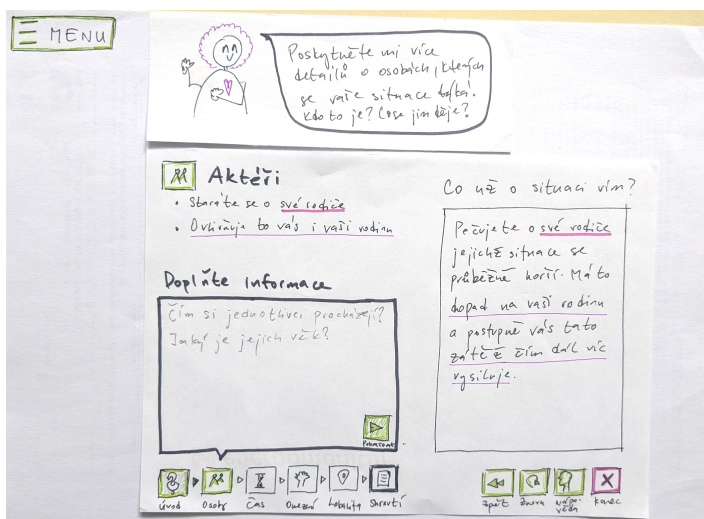 MENU
Poskytněte mi více
detailů o osobách, kterých
se vaše situace týká.
Kdo to je? Co se jim děje?
Aktéři
• Staráte se o své rodiče
• Ovlivňuje to vás i vaši rodinu
Doplňte informace
Čím si jednotlivci procházejí?
Jaký je jejich věk?
Pokračovat
Co už o situaci vím?
Pečujete o své rodiče
jejichž situace se
průběžně horší. Má to
dopad na vaši rodinu
a postupně vás tato
zátěž čím dál víc
vysiluje.
Úvod
Osoby
Čas
Omezení
Lokalita
Shrnutí
Zpět
Znova
Nápo-
věda
Konec